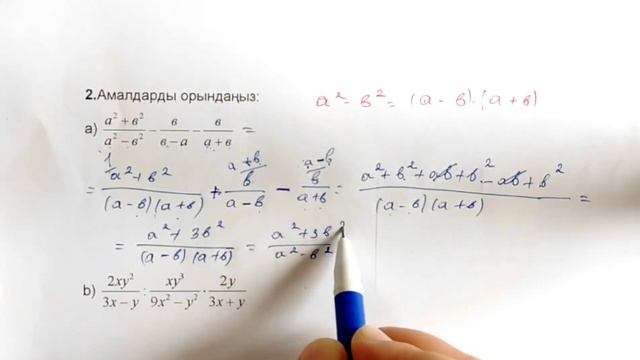 2.Амалдарды орындаңыз:
a² - в² = (a - в)·(a + в)
a) \frac{a² + в²}{a² - в²} - \frac{в}{в - a} - \frac{в}{a + в} =
= \frac{a² + в²}{(a - в)(a + в)} + \frac{в}{a - в} - \frac{в}{a + в} = \frac{a² + в² + aв + в² - aв + в²}{(a - в)(a + в)} =
= \frac{a² + 3в²}{(a - в)(a + в)} = \frac{a² + 3в²}{a² - в²}
b) \frac{2xy²}{3x - y} : \frac{xy³}{9x² - y²} · \frac{2y}{3x + y}